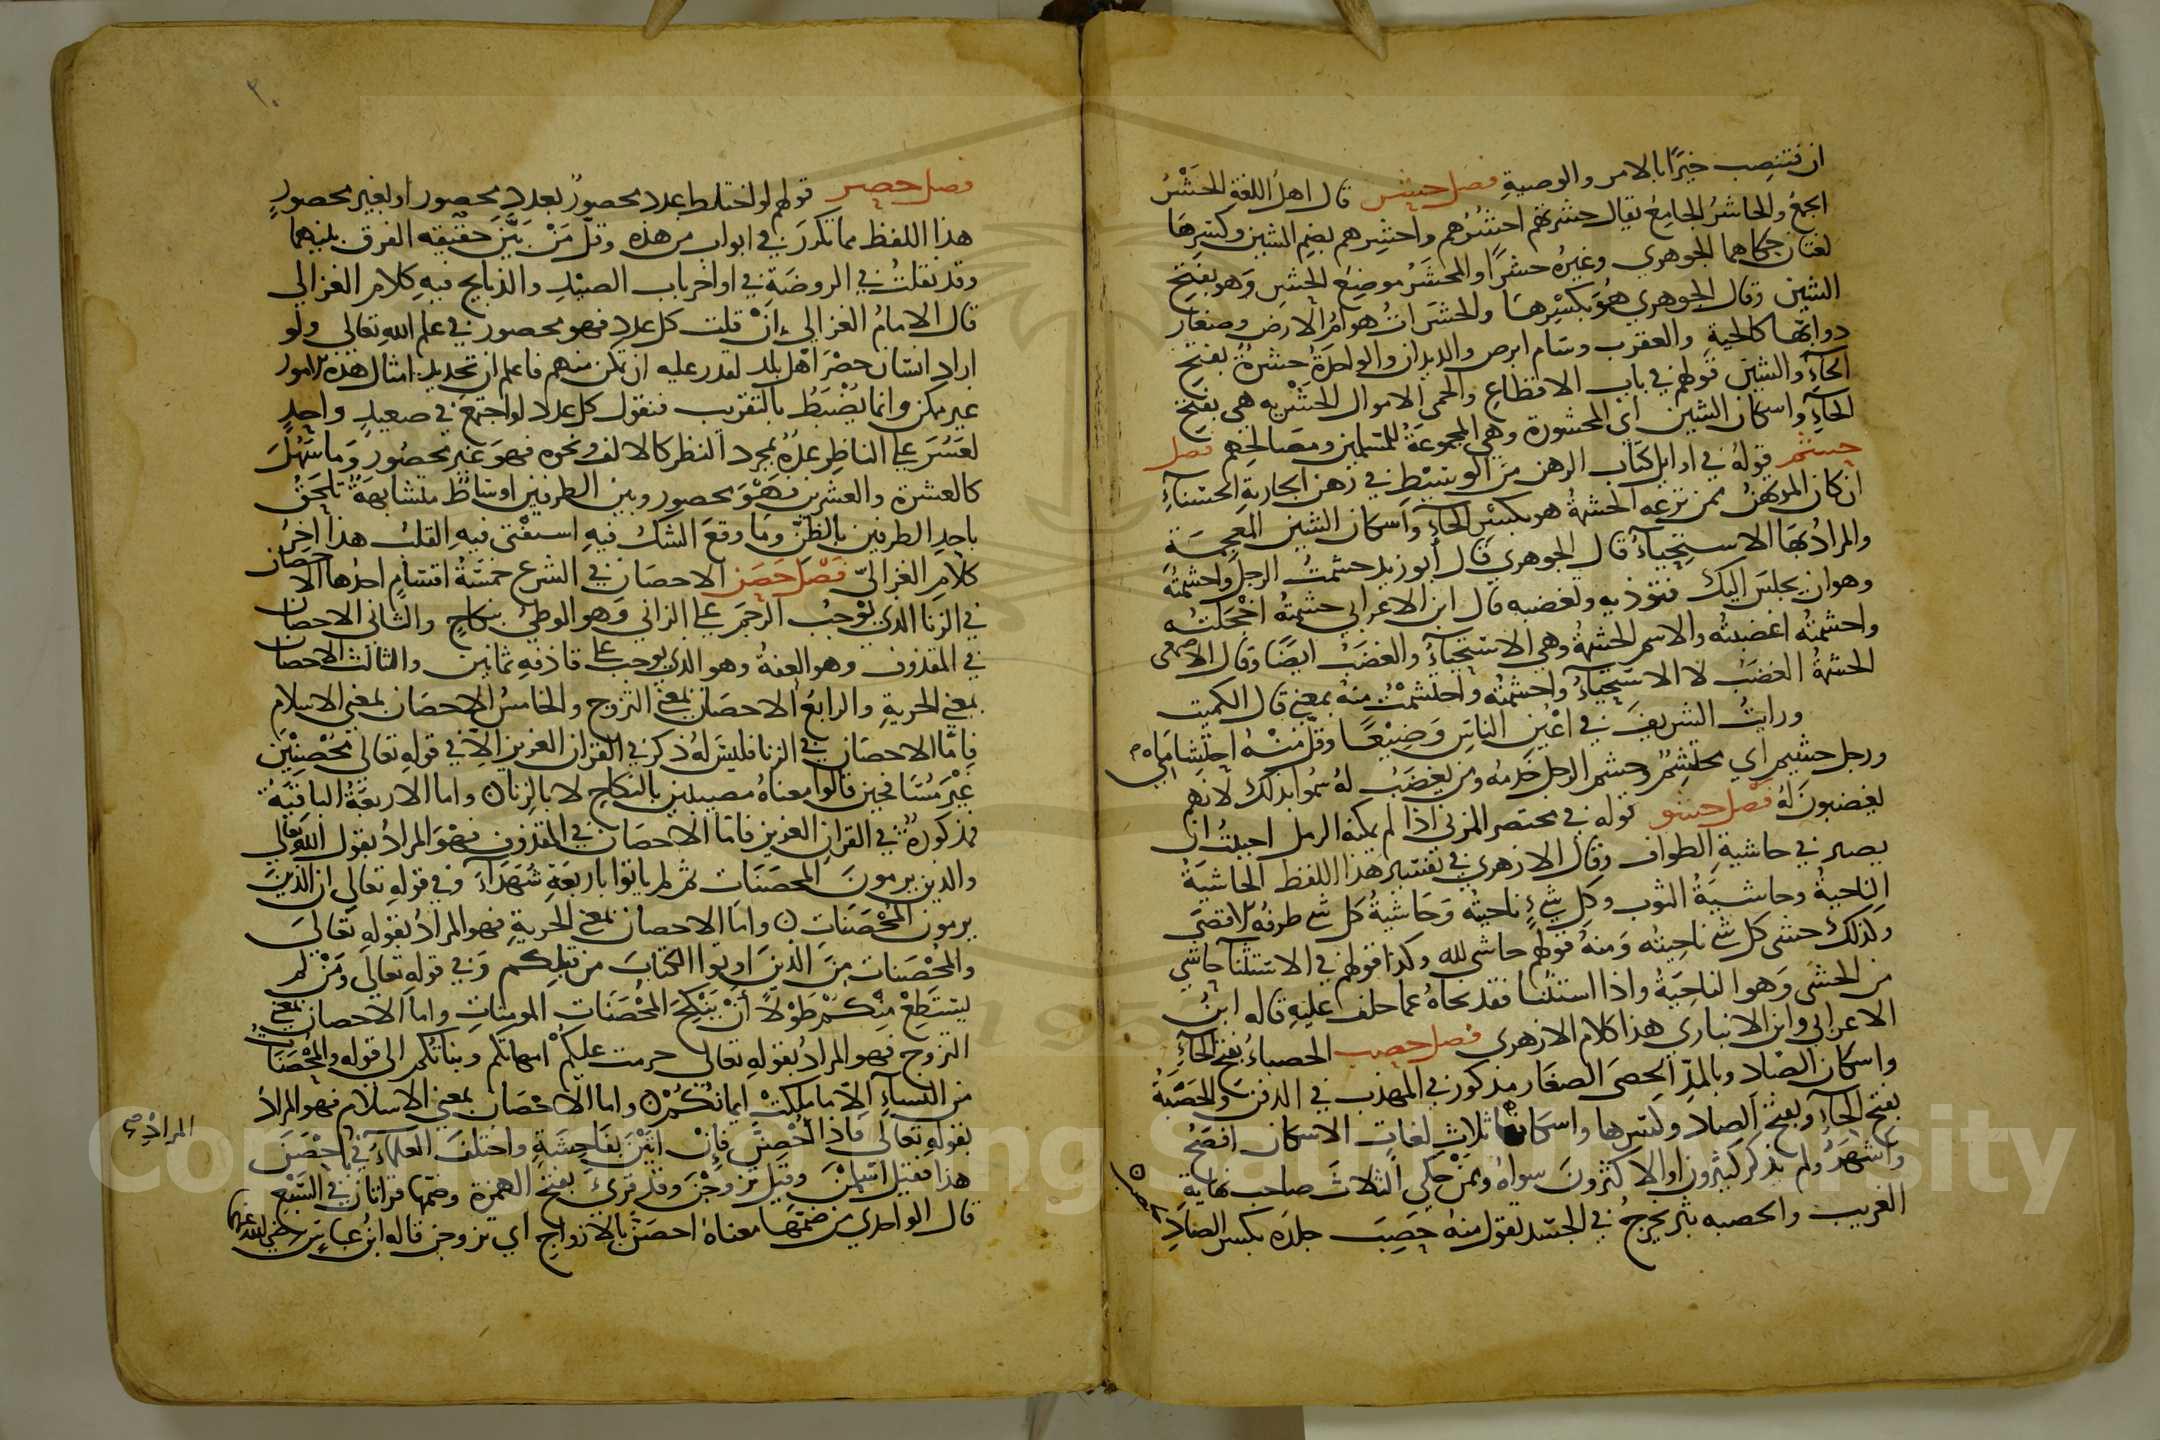 ان فتنصب خيرًا بالامر والوصية فصل حشر قال اهل اللغة الحَشْرُ
الجمعُ والحاشرُ الجامعُ يقال حشرتهم احشُرُهم واحشِرهم بضم الشين وكسرها
لغتان حكاهما الجوهري وغيره حشرًا والمحشَرُ موضع الحشر وهو بفتح
الشين وقال الجوهري هُوَ بكسرها والحشَراتُ هوامُّ الارض وصغار
دوابّها كالحية والعقرب وسام ابرص والديدان والواحدةُ حشرةٌ بفتح
الحآءِ والشين قولهم في باب الاقطاع والحمى الاموال الحَشْريه هي بفتح
الحآءِ واسكان الشين اى المحشورة وهي المجموعَةُ للمسلمين ومصالحهم فصل
حشم قوله في اوايل كتاب الرهن من الوسيط في رهن الجارية الحسنآءِ
ان كان المرتهنُ ممن تزعه الحشمةُ هو بكسر الحآءِ واسكان الشين المعجمة
والمرادُ بها الاستحياءُ قال الجوهري قال أبو زيد حشمتُ الرجل واحشمتُه
وهو ان يجلس اليك فتؤذيه وتغضبه قال ابن الاعرابي حشمتُه اخجلتُه
واحشمتُه اغضبتُه والاسم الحشمةُ وهي الاستحياءُ والغضَبُ ايضًا وقال الاصمعى
الحشمةُ الغضَبُ لا الاستحياءُ واحشمتُه واحتشمتُ منهُ بمعنى قال الكميت
ورايتُ الشريفَ في اعْيُنِ الناسِ وَضِيْعًا وقلّ مِنْهُ احتِشامي
ورجل حشيم اي محتشِمٌ وحشم الرجل خدمُه ومن يغضَبُ لهُ سُمُوا بذلك لانهم
يغضبونَ لهُ فصل حشو قوله في مختصر المزني اذا لم يمكنه الرمل احببتُ ان
يصير في حاشية الطواف وقال الازهري في تفسير هذا اللفظ الحاشيَةُ
الناحيةُ وحاشيَةُ الثوب وكل شيءٍ ناحيتُه وَحَاشيةُ كل شي طرفُه الاقصَى
وكذلك حشى كل شي ناحيتُه ومنهُ قولهم حاشى لله وكذا قولهم في الاستثنآ حاشي
من الحشَى وَهوا الناحيَةُ واذا استثنَا فقد نحاهُ عما حلف عليهِ قاله ابنُ
الاعرابي وابن الانباري هذا كلام الازهري فصل حصب الحصباءُ بفتح الحآءِ
واسكان الصاد وبالمدِّ الحصَى الصغار مذكور في المهذب في الدفن والحَصْبَةُ
بفتح الحآءِ وبفتح الصاد وكسرها واسكانها ثلاثِ لغاتٍ الاسكان افصَحُ
وَأشهَرُ ولم يذكر كثيرون اوالاكثرونَ سواهُ وممن حكي الثلاثَ صاحب نهاية
الغريب والحصبه بثر يخرجُ في الجسد يقول منهُ حَصِبَ جلدَه بكسر الصادِ
فصل حصر قولهم لو اختلط عدد محصورٌ بعددٍ محصور او بغير محصورٍ
هذا اللفظ مما تكررَ في ابواب من هذه وقلّ مَنْ بَيَّنَ حقيقته الفرق بينهما
وقد نقلتُ في الروضَةِ في اواخر باب الصيْدِ والذبايح فيه كلام الغزالي
قال الامامُ الغزالي انْ قلتَ كل عددٍ فهو محصور في علم الله تعالى ولو
اراد انسان حصْرَ اهْل بلد لقدر عليه ان تمكن منهم فاعلم ان تحديد امثال هذه الامور
غير ممكن وانما يُضْبَطُ بالتقريب فنقول كل عدد لو اجتمع في صعيدٍ واحدٍ
لعَسُرَ على الناظر عدُّهُ بمجرد النظر كالالف ونحوه فهوَ غير محصُور وَما سَهُلَ
كالعشرة والعشرين فهْوَ محصور وبين الطرفين اوسَاطٌ متشابهَةٌ تلحَقُ
باحد الطرفين بالظنِّ وَمَا وقعَ الشكُ فيهِ استفتى فيهِ القلبُ هذا اخرُ
كلام الغزالىّ فصل حصن الاحصَان في الشرع خمسَةُ اقسَامٍ احدُها الاحصان
في الزنا الذي يُوجبُ الرجمَ على الزاني وهو الوطئُ بنكاحٍ والثاني الاحصان
في المقذوف وهو العفةُ وهو الذي يوجب على قاذفه ثمانين والثالث الاحصان
بمعنى الحريةِ والرابعُ الاحصَان بمعنى التزوج والخامسُ الاحصَان بمعنى الاسلام
فامّا الاحصَان في الزنا فليسَ لهُ ذكر في القران العزيز الّا في قوله تعالى مُحْصِنِيْنَ
غَيْرَ مُسَافحين قالوا معناهُ مصيبين بالنكاحِ لا بالزنا واما الاربعَةُ الباقيَةُ
فمذكورةٌ في القران العزيز فامّا الاحصَان في المقذوف فهوَ المرادُ بقول الله تعالي
والذين يرمونَ المحصَنَات ثم لم ياتوا باربَعَةِ شُهَدَآءَ وفي قوله تعالى ان الذينَ
يرمون المُحْصَنَاتِ واما الاحصان بمعنى الحريةِ فهو المرادُ بقوله تعالىَ
والمُحْصَنات مِنَ الذينَ اوتوا الكتابَ من قبلِكم وَفي قوله تعالَى وَمَنْ لم
يستَطِعْ مِنْكُمْ طَوْلًا أنْ يَنْكِحَ المُحْصَنَاتِ المومِنَاتِ واما الاحصان بمعنى
التزوج فهو المرادُ بقوله تعالى حرمت عليكُمْ امهاتكم وبناتُكم الى قوله والمُحْصَنَاتُ
من النسآءِ الّا ما ملكتْ ايمانُكُمْ واما الاحْصَان بمعنى الاسلام فهو المرادُ
بقوله تعالى فاذا أُحْصِنَّ فَإنْ اتَيْنَ بفَاحِشَةٍ واختلفَ العلمآءُ في احْصَنَ
المراد
هذا فقيل اسْلمْنَ وقيل تزوجْنَ وقد قرىَ بفتح الهمزة وضمها قراتان في السَّبْعِ
قال الواحدي من ضمّهَا معناهُ احصَنَّ بالازواج اي تزوجن قاله ابنُ عباس رضي الله عنهما
Copyright © King Saud University
1957